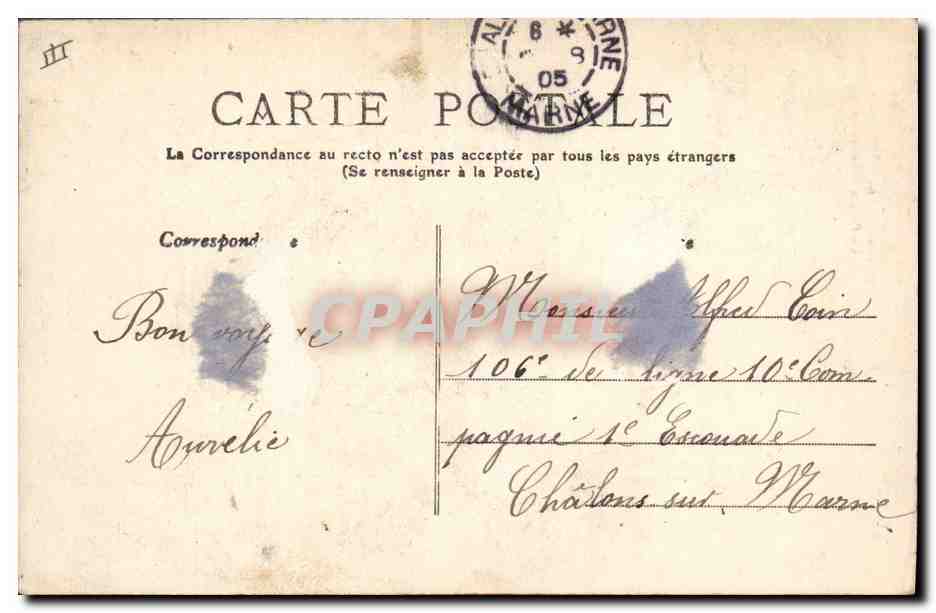 III
6 *
8
05
MARNE
CARTE POSTALE
La Correspondance au recto n'est pas acceptée par tous les pays étrangers
(Se renseigner à la Poste)
Correspond e
e
Bon voyage
Aurélie
Monsieur Alfred Coin
106e de ligne 10e Com-
pagnie 1e Escouade
Châlons sur Marne
CPAPHIL